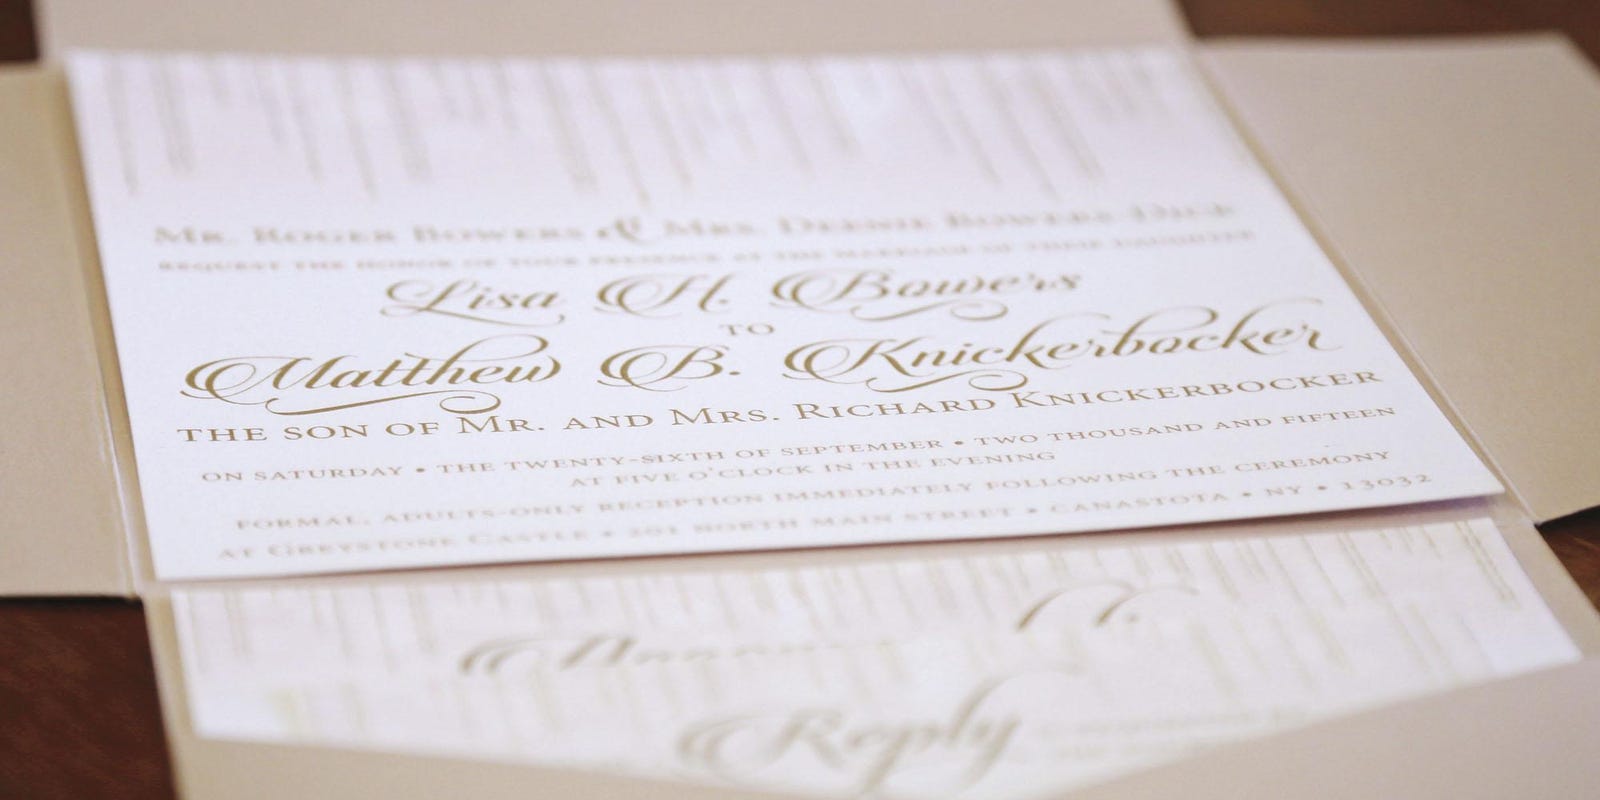 Mr. Roger Bowers & Mrs. Deenie Bowers-Dick
request the honor of your presence at the marriage of their daughter
Lisa H. Bowers
to
Matthew B. Knickerbocker
the son of Mr. and Mrs. Richard Knickerbocker
on Saturday • the twenty-sixth of September • two thousand and fifteen
at five o'clock in the evening
Formal, adults-only reception immediately following the ceremony
at Greystone Castle • 201 North Main Street • Canastota • NY • 13032
Reply